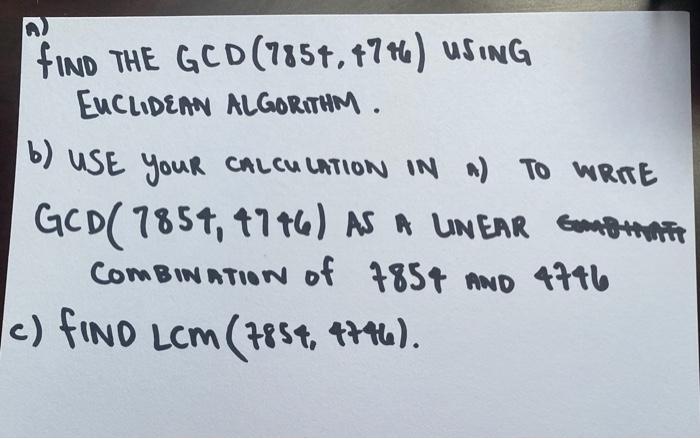 A)
FIND THE GCD(7854, 4746) USING
EUCLIDEAN ALGORITHM.
b) USE YOUR CALCULATION IN A) TO WRITE
GCD(7854, 4746) AS A LINEAR
COMBINATION OF 7854 AND 4746
c) FIND LCM(7854, 4746).